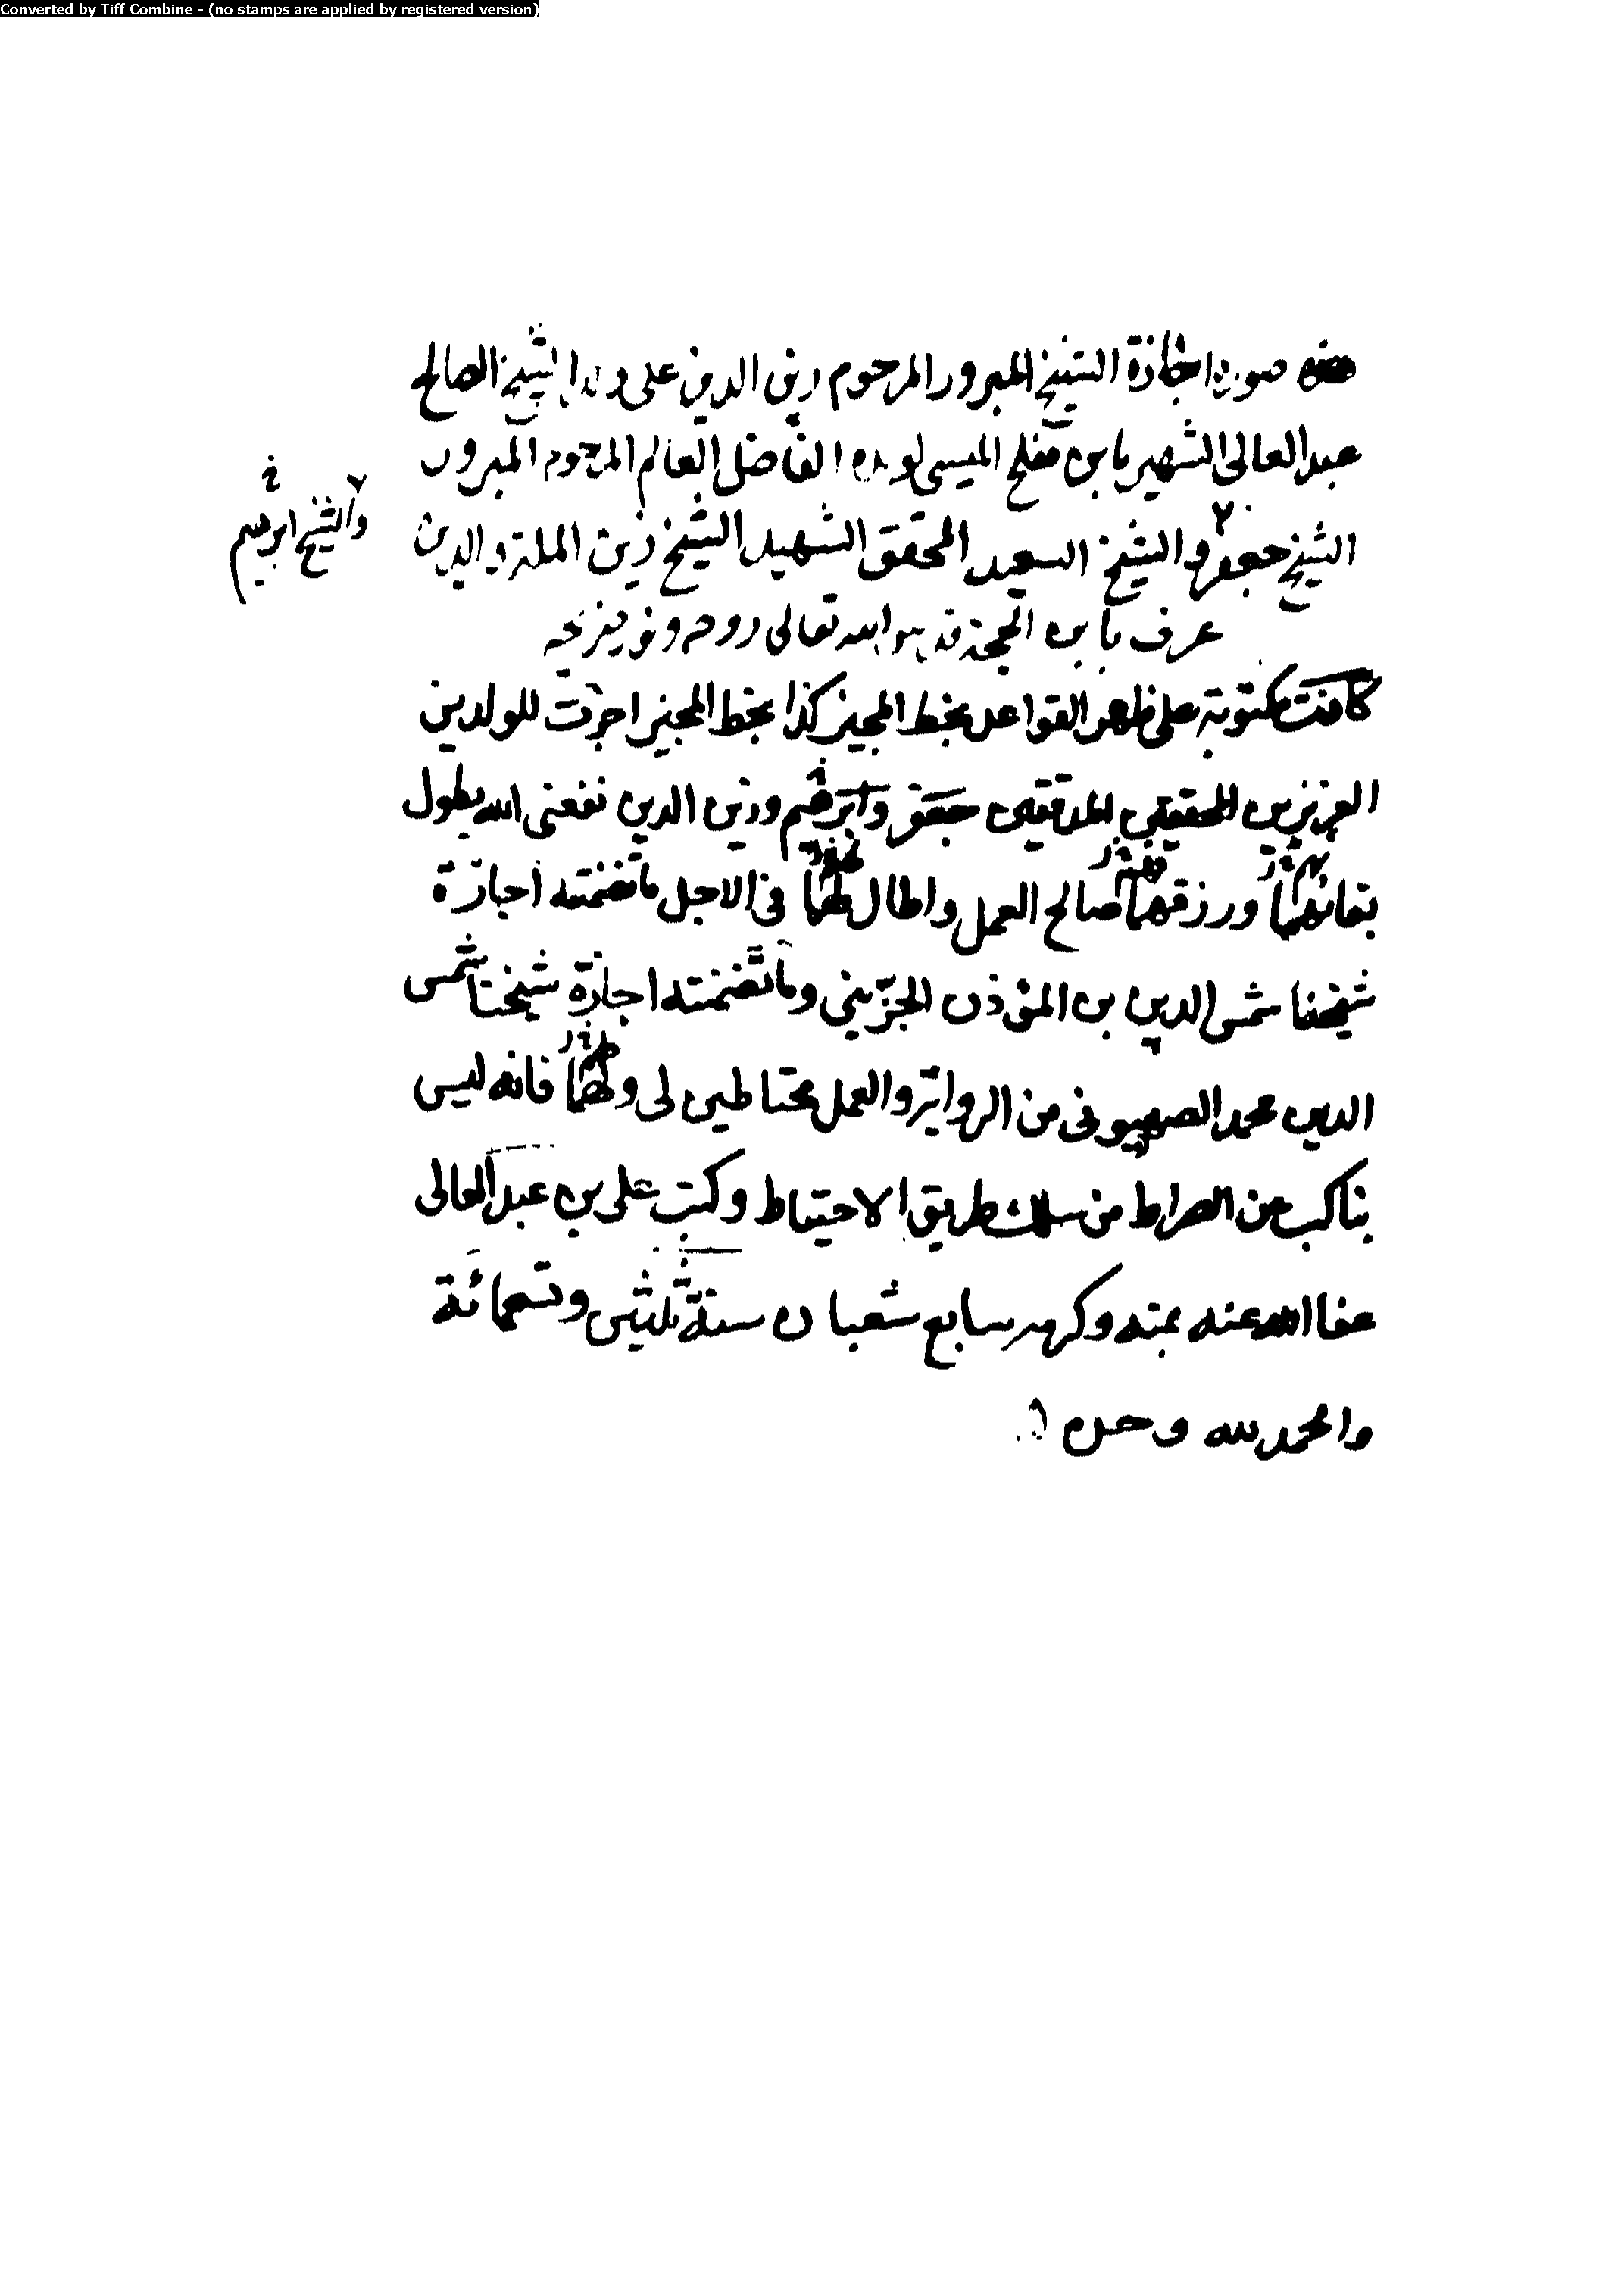 Converted by Tiff Combine - (no stamps are applied by registered version)
هذه صورة اجازة الشيخ المبرور المرحوم زين الدين على ولد الشيخ الصالح
عبد العالى الشهير بابن مفلح الميسى لولده الفاضل العالم المرحوم المبرور
الشيخ جعفر والشيخ السعيد المحقق الشهيد الشيخ زين الملة والدين
والشيخ ابرهيم
عرف بابن الحجة قدس الله تعالى روحه ونور ضريحه
كانت مكتوبة على ظهر القواعد بخط المجيز كذا بخط المجيز اجزت للولدين
العزيزين المحققين المدققين جعفر وابرهيم وزين الدين نفعنى الله بطول
بقائهما ورزقهما صالح العمل واطال لهما فى الاجل ما تضمنته اجازة
شيخنا شمس الدين بن المؤذن الجزينى وما تضمنته اجازة شيخنا شمس
الدين محمد الصهيونى من الرواية والعمل محتاطين لى ولهما فانه ليس
بناكب عن الصراط من سلك طريق الاحتياط وكتب على بن عبد العالى
عفا الله عنه بمنه وكرمه سابع شعبان سنة ثلثين وتسعمائة
والحمد لله وحده